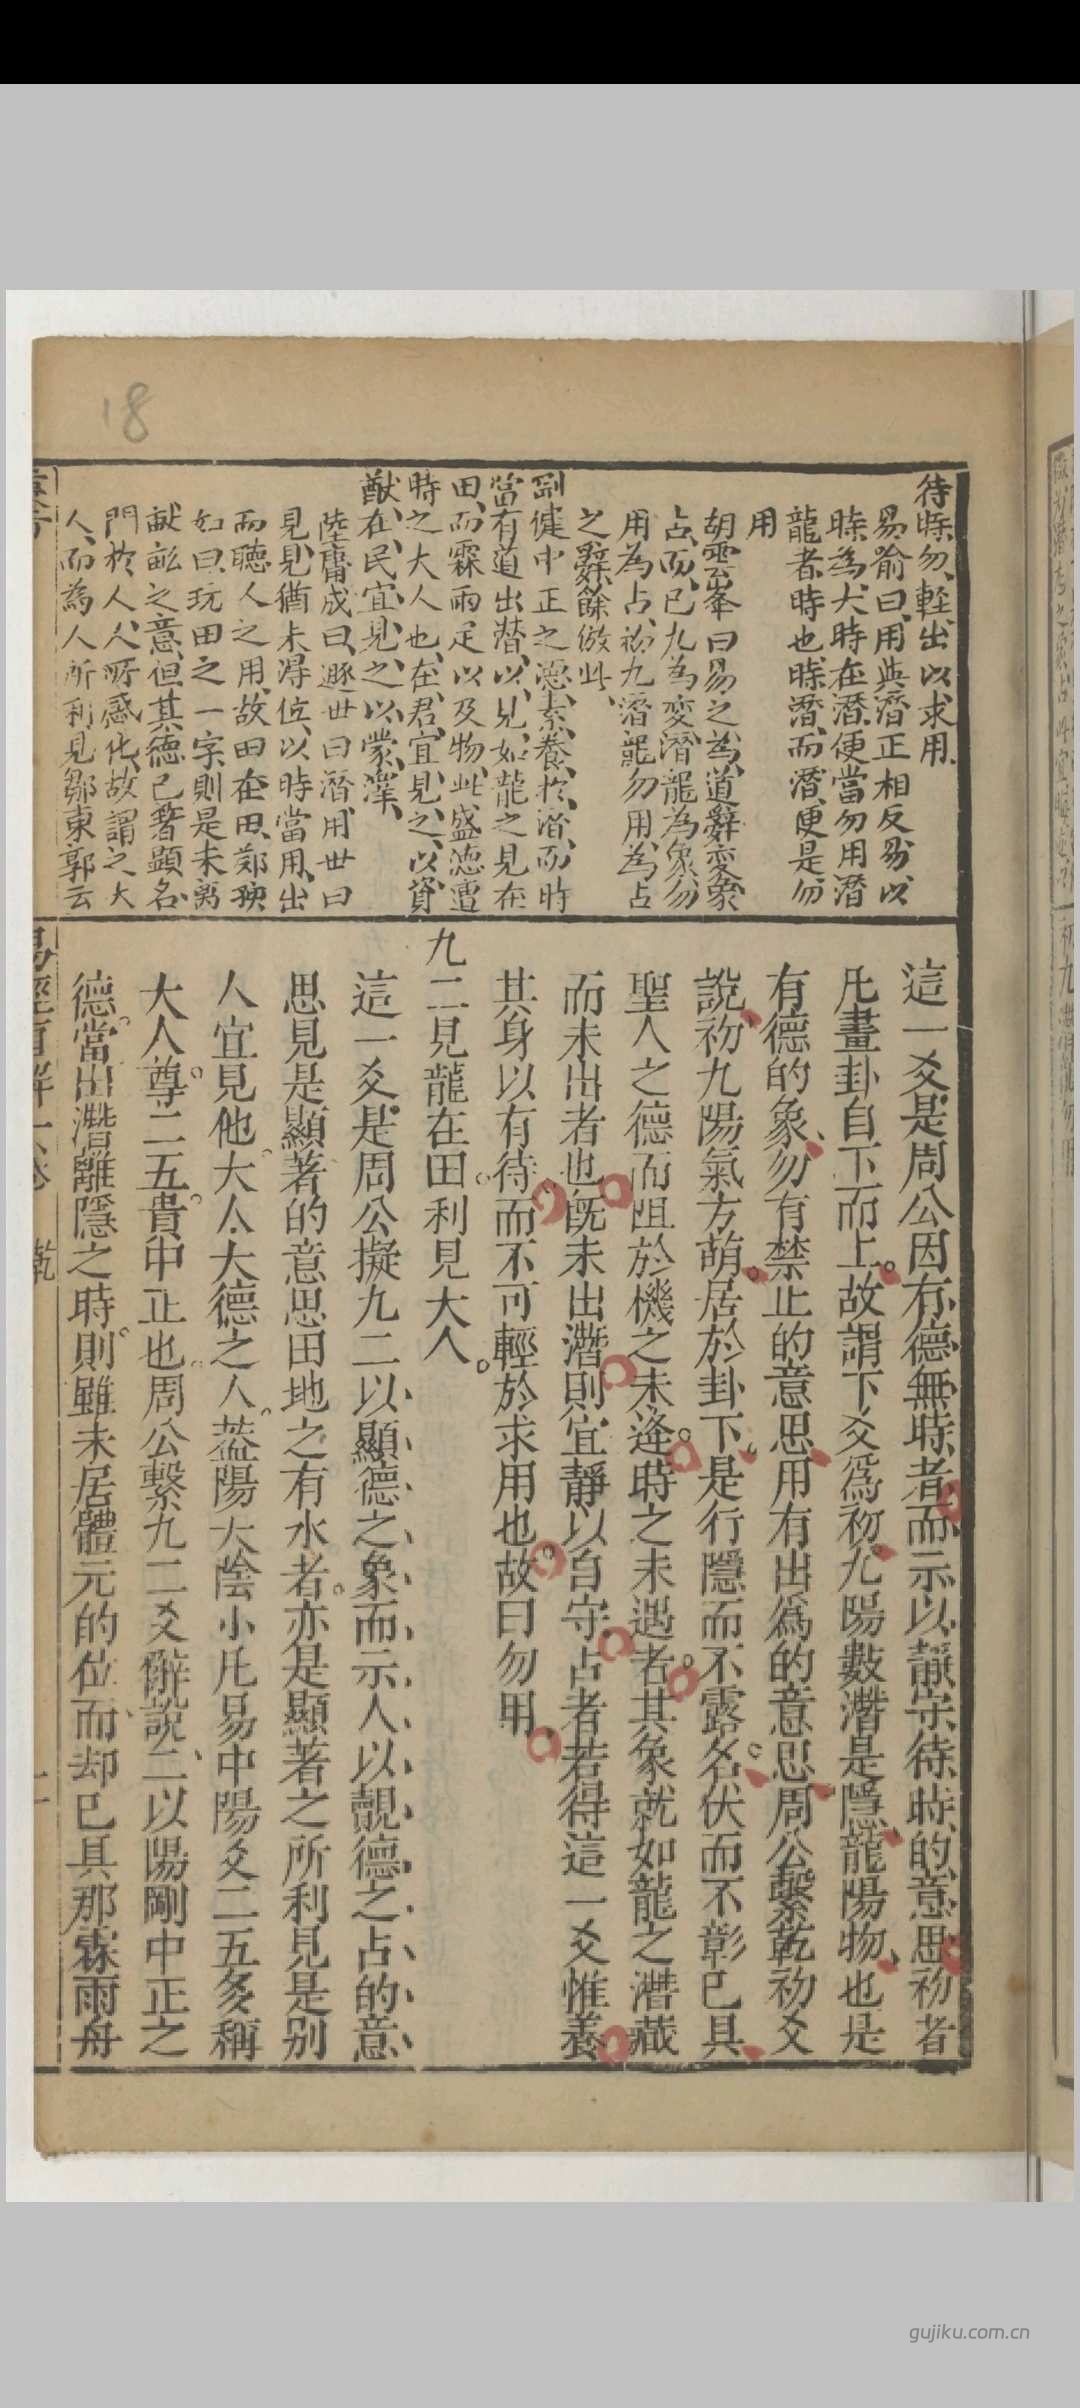 18
待時勿輕出以求用
易喻曰用與潛正相反易以
時為大時在潛便當勿用潛
龍者時也時潛而潛便是勿
用
胡雲峯曰易之為道辭變象
占而已九為變潛龍為象勿
用為占初九潛龍勿用為占
之辭餘倣此
剛健中正之德素養於潛而時
當有道出潛以見如龍之見在
田而霖雨足以及物此盛德遭
時之大人也在君宜見之以資
猷在民宜見之以蒙澤
陸庸成曰遯世曰潛用世曰
見見猶未得位以時當用出
而聽人之用故田在田鄭
如曰玩田之一字則是未离
畎畝之意但其德已著顯名
門於人人所感化故謂之大
人而為人所利見鄒東郭云
這一爻是周公因有德無時者而示以靜守待時的意思初者
凡畫卦自下而上故謂下爻爲初九陽數潛是隱龍陽物也是
有德的象勿有禁止的意思用有出爲的意思周公繫乾初爻
說初九陽氣方萌居於卦下是行隱而不露名伏而不彰已具
聖人之德而阻於機之未逢時之未遇者其象就如龍之潛藏
而未出者也旣未出潛則宜靜以自守占者若得這一爻惟養
其身以有待而不可輕於求用也故曰勿用
九二見龍在田利見大人
這一爻是周公擬九二以顯德之象而示人以覩德之占的意
思見是顯著的意思田地之有水者亦是顯著之所利見是别
人宜見他大人大德之人葢陽大陰小凡易中陽爻二五多稱
大人尊二五貴中正也周公繫九二爻辭說二以陽剛中正之
德當出潛離隱之時則雖未居體元的位而却已具那霖雨舟
易經百解一卷
乾
gujiku.com.cn